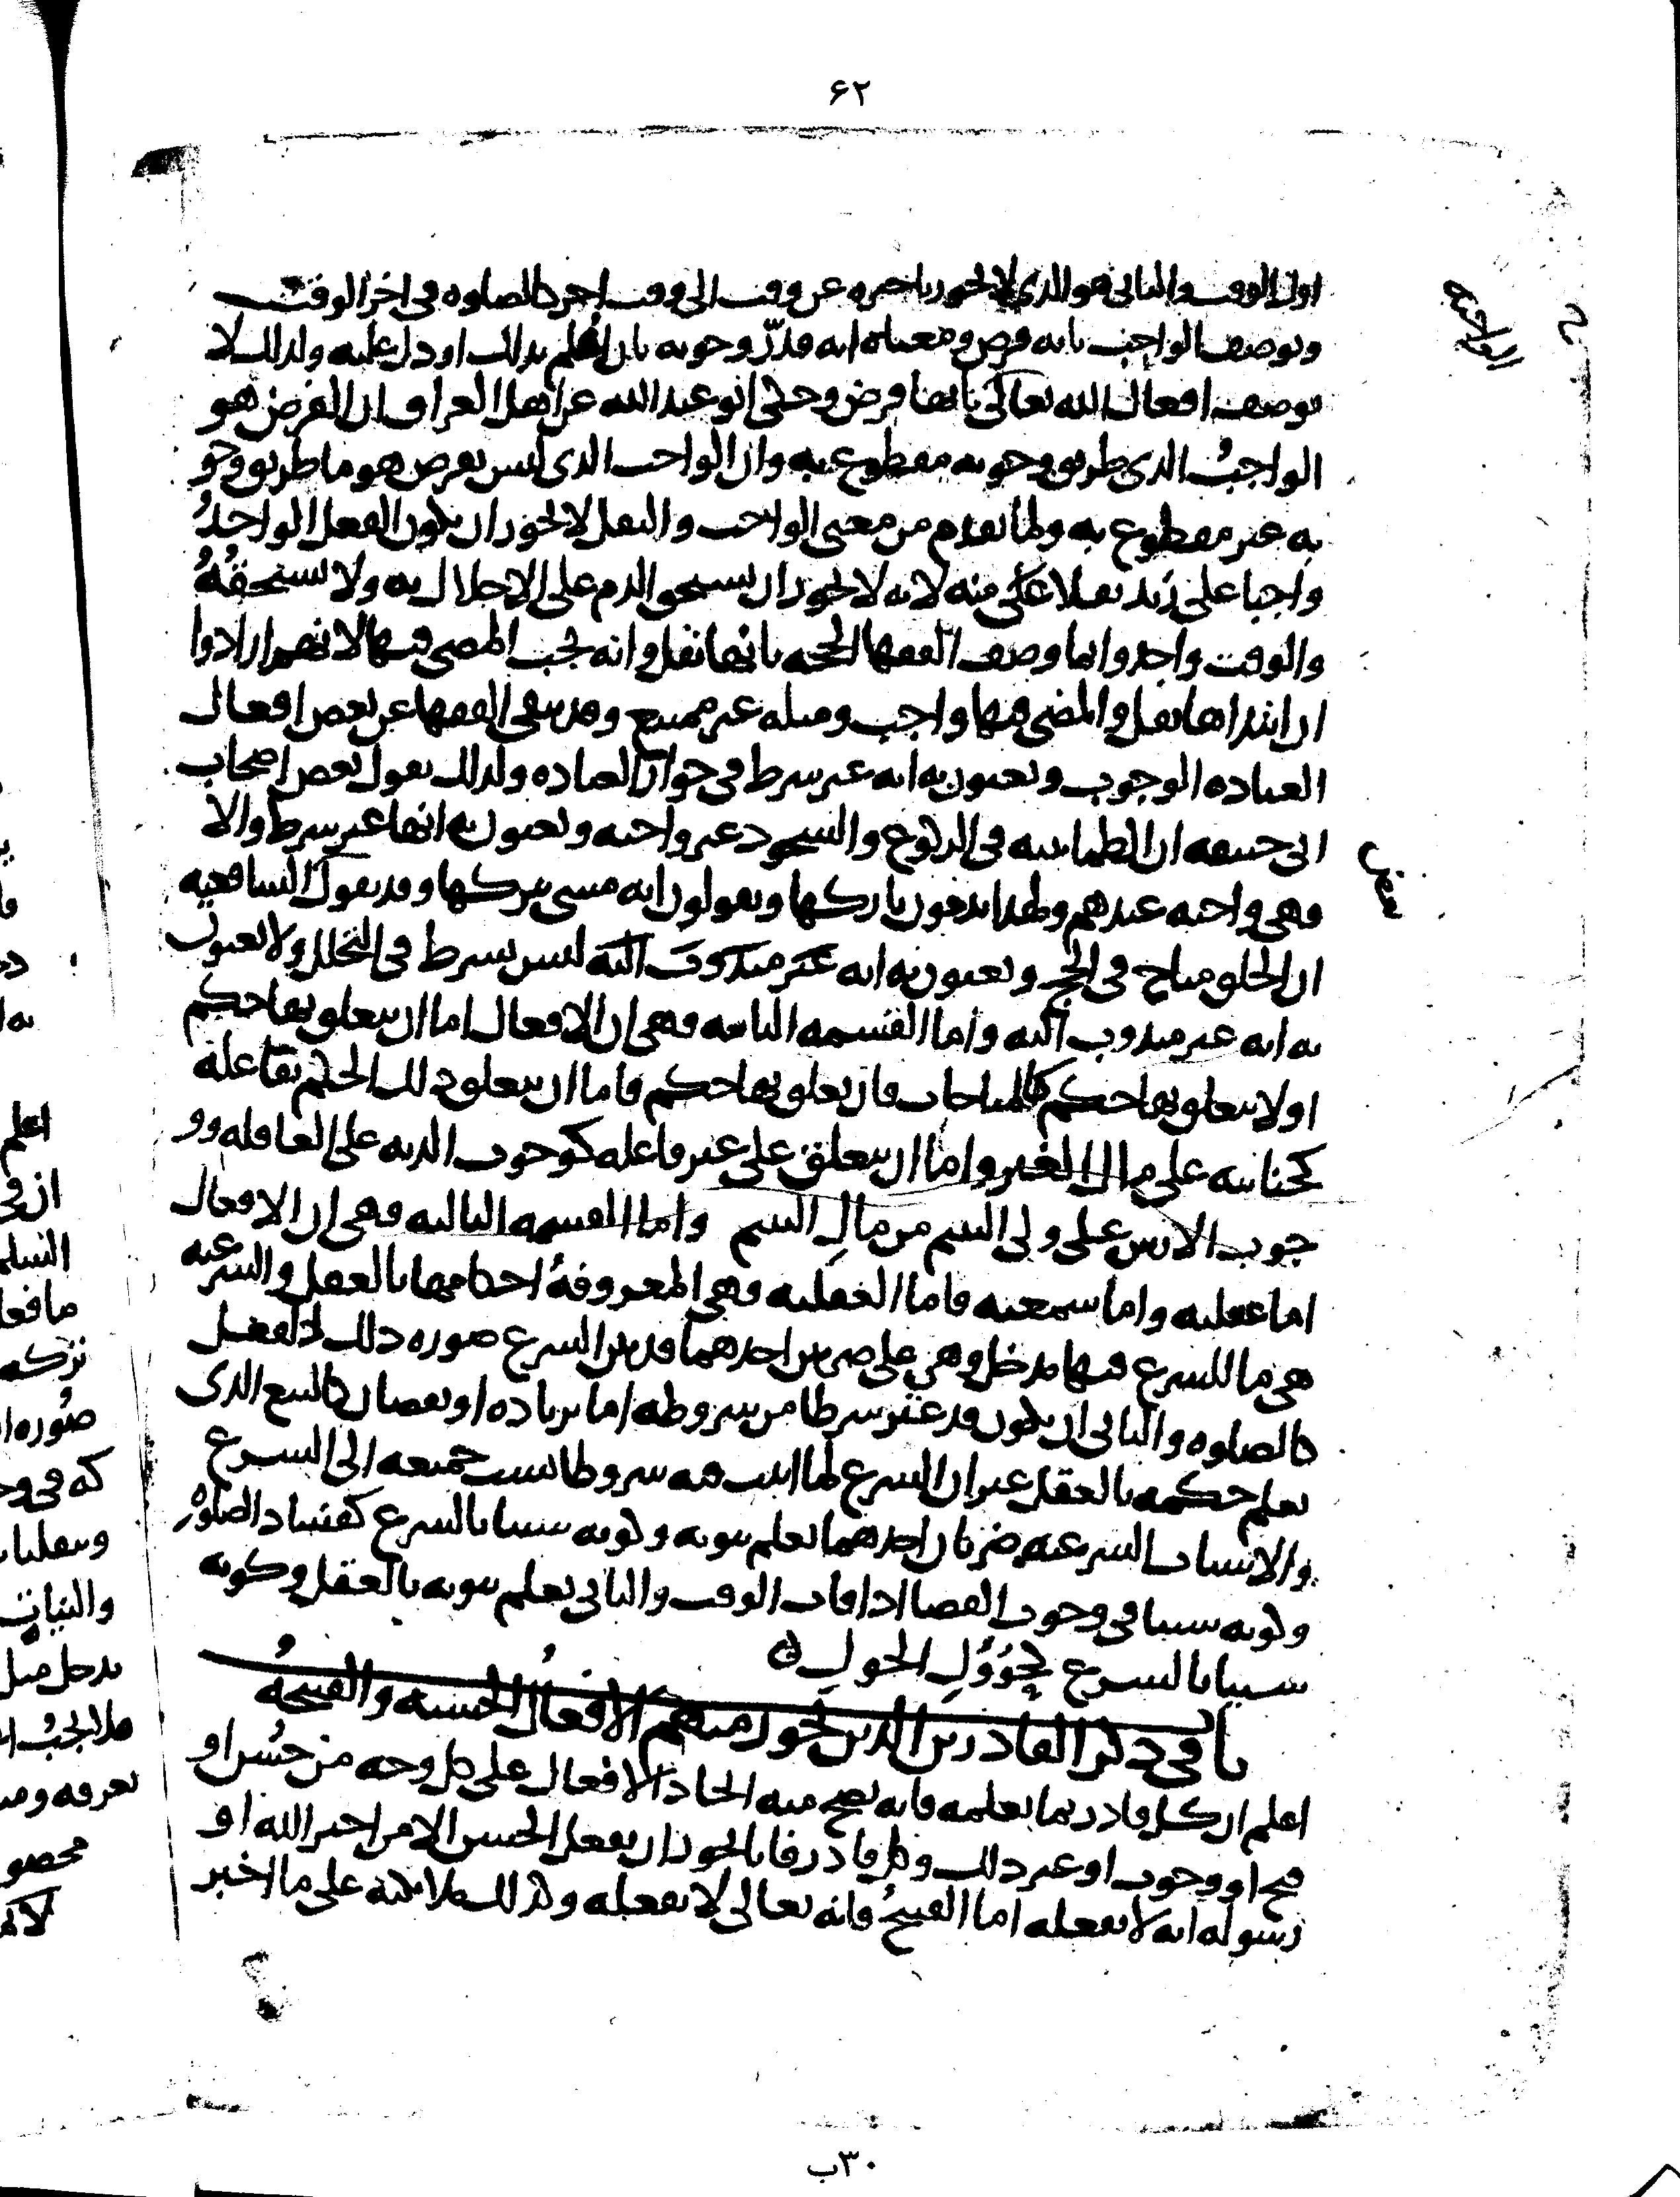 ۶۲
اول الوقت والثاني هو الذي لا يجوز تاخيره عن وقت الى وقت اخر كالصلوه في اخر الوقت
ويوصف الواجب بانه فرض ومعناه انه قدّر وجوبه بان اعلم بذلك او دل عليه ولذلك لا
توصف افعال الله تعالى بانها فرض وحكى ابو عبد الله عن اهل العراق ان الفرض هو
الواجبُ الذي طريق وجوبه مقطوع به وان الواجب الذي ليس بفرض هو ما طريق وجو
به غير مقطوع به ولما تقدم من معنى الواجب والنفل لا يجوز ان يكون الفعل الواحدُ
واجبا على زيد نفلا منه لانه لا يجوز ان يستحق الذم على الاخلال به ولا يستحقُهُ
والوقت واحد وانما وصف الفقها الحجه بانها نفل وانه يجب المضي فيها لانهم ارادوا
ان ابتداها نفل والمضي فيها واجب ومثله غير ممتنع وقد ينفي الفقها عن بعض افعال
العباده الوجوب ويعنون به انه غير شرط في جواز العباده ولذلك يقول بعض اصحاب
ابي حنيفه ان الطمانينه في الركوع والسجود غير واجبه ويعنون به انها غير شرط والا
فهي واجبه عندهم ولهذا يذمون تاركها ويقولون انه مسي بتركها وقد يقول الشافعيه
ان الحلق مباح في الحج ويعنون به انه غير مندوب اليه ليس بشرط في التحلل ولا يعنون
به انه غير مندوب اليه واما القسمه الثانيه فهي ان الافعال اما ان يتعلق بها حكم
او لا يتعلق بها حكم كالمباحات فان تعلق بها حكم فاما ان يتعلق ذلك الحكم بفاعله
كجنايته على مال الغير واما ان يتعلق على غير فاعله كوجوب الديه على العاقله وو
جوب الارش على ولي اليتيم من مالِ اليتيم واما القسمه الثالثه فهي ان الافعال
اما عقليه واما سمعيه فاما العقليه فهي المعروفهُ احكامها بالعقل والشرعيه
هي ما للشرع فيها مدخل وهي على ضربين احدهما قد بين الشرع صوره ذلك الفعل
كالصلوه والثاني ان يكون قد غير شرطا من شروطه اما بزياده او نقصان كالبيع الذي
يعلم حكمه بالعقل غير ان الشرع لما اثبت فيه شروطا نسب جميعه الى الشرع
والاسباب الشرعيه ضربان احدهما يعلم ثبوته وكونه سببا بالشرع كفساد الصلوه
وكونه سببا في وجوب القضا اذا فات الوقت والثاني يعلم ثبوته بالعقل وكونه
سببا بالشرع كحؤول الحول
باب في ذكر القادرين الذين يجوز منهم الافعالُ الحسنه والقبيحهُ
اعلم ان كل قادر بما يعلمه فانه يصح منه ايجاد الافعال على كل وجه من حسُن او
قبح او وجوب او غير ذلك وكل قادر فانا نجوز ان يفعل الحسن الا من اخبر الله او
رسوله انه لا يفعله اما القبيحُ فانه تعالى لا يفعله وكذلك ملائكته على ما اخبر
٣٠ب